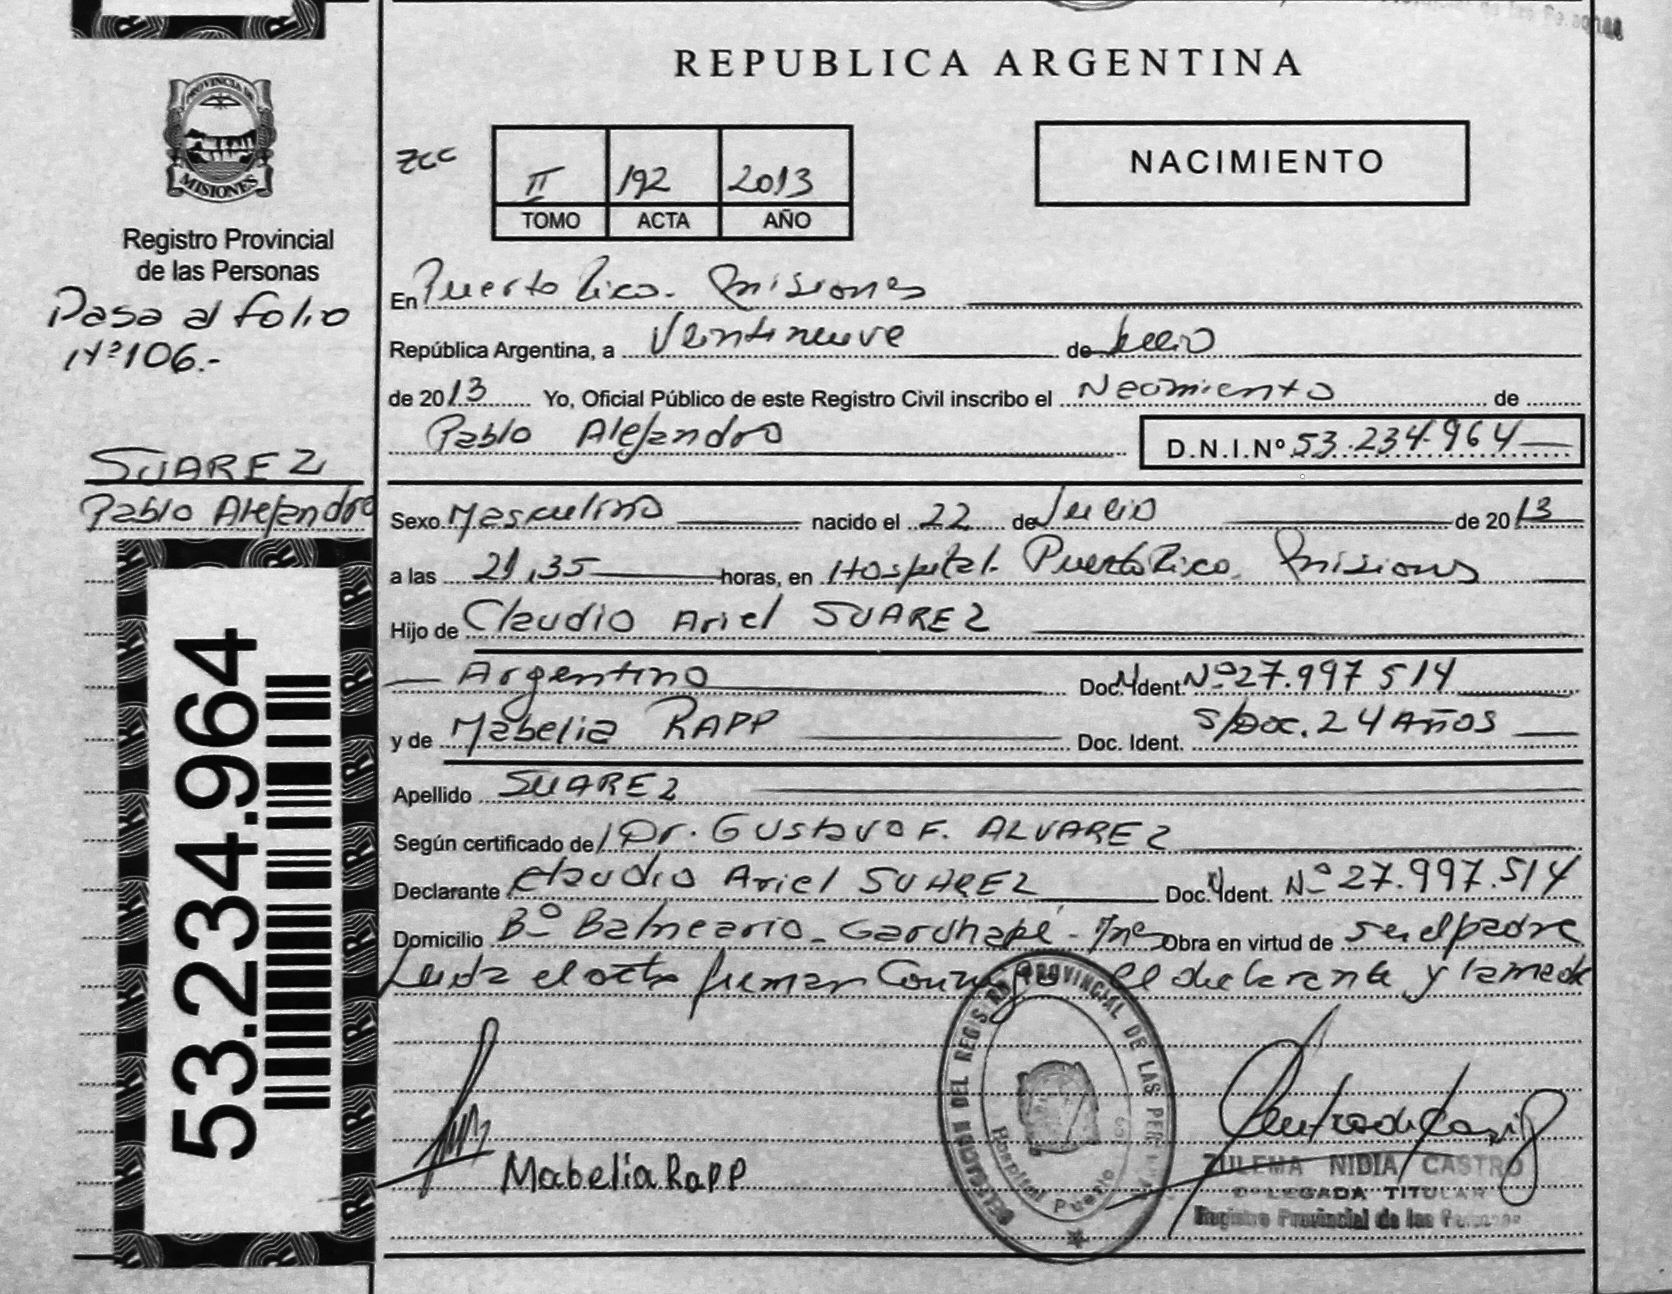 REPUBLICA ARGENTINA
PROVINCIA DE
MISIONES
Registro Provincial
de las Personas
Pasa al folio
Nº106.-
SUAREZ
Pablo Alejandro
53.234.964
ZCC
II 192 2013
TOMO ACTA AÑO
NACIMIENTO
En Puerto Rico. Misiones
República Argentina, a Veintinueve de Julio
de 2013 Yo, Oficial Público de este Registro Civil inscribo el Nacimiento de
Pablo Alejandro D.N.I.Nº 53.234.964
Sexo Masculino nacido el 22 de Julio de 2013
a las 21,35 horas, en Hospital. Puerto Rico. Misiones
Hijo de Claudio Ariel SUAREZ
Argentino Doc. Ident. Nº 27.997.514
y de Mabelia RAPP Doc. Ident. S/Doc. 24 AÑOS
Apellido SUAREZ
Según certificado de Dr. Gustavo F. ALVAREZ
Declarante Claudio Ariel SUAREZ Doc. Ident. Nº 27.997.514
Domicilio Bº Balneario - Garuhapé - Mnes Obra en virtud de ser el padre
Leida el acta firman Conmigo el declarante y la madre
Mabelia Rapp
DELEGACION DEL REGISTRO PROVINCIAL DE LAS PER
Hospital Puerto
ZULEMA NIDIA CASTRO
DELEGADA TITULAR
Registro Provincial de las Personas